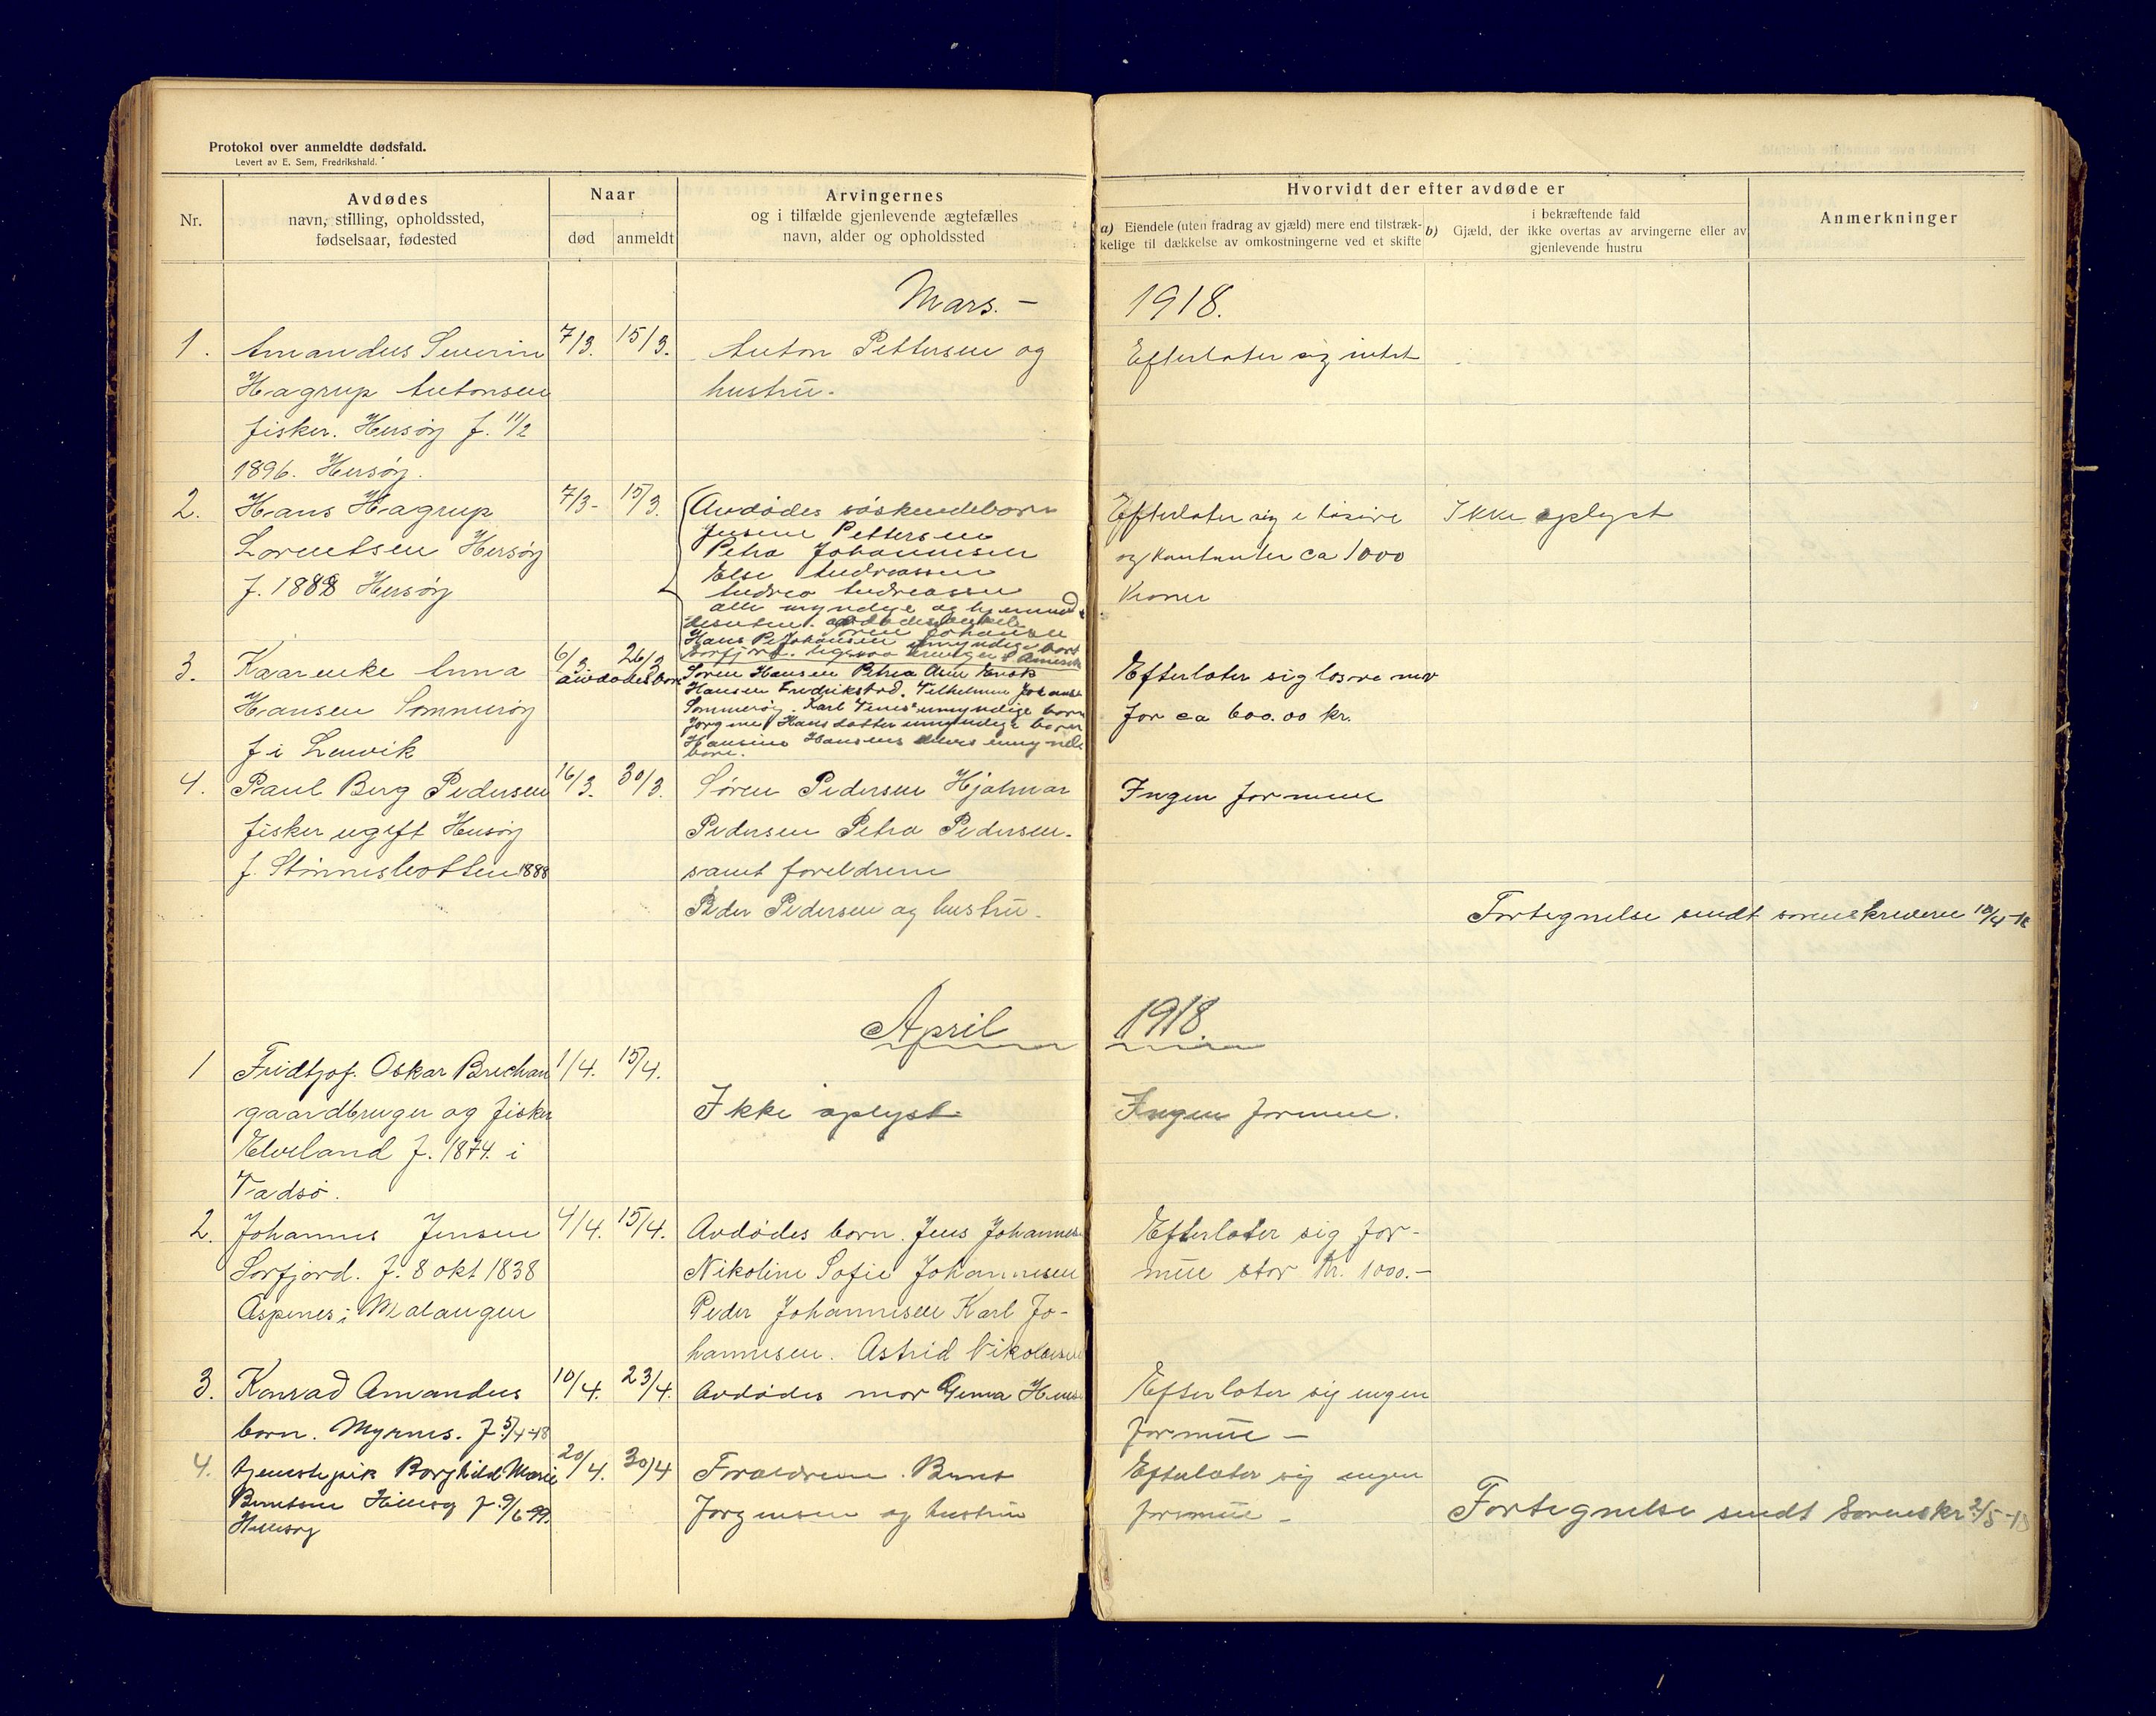 Protokol over anmeldte dødsfald.
Levert av E. Sem, Fredrikshald.
Nr.
Avdødes
navn, stilling, opholdssted,
fødselsaar, fødested
Naar
død
anmeldt
Arvingernes
og i tilfælde gjenlevende ægtefælles
navn, alder og opholdssted
Hvorvidt der efter avdøde er
a) Eiendele (uten fradrag av gjæld) mere end tilstræk-
kelige til dækkelse av omkostningerne ved et skifte
i bekræftende fald
b) Gjæld, der ikke overtas av arvingerne eller av
gjenlevende hustru
Anmerkninger
Mars. - 1918.
1. Amandus Severin 7/3. 15/3. Anton Pettersen og Efterlater sig intet
Hagrup Antonsen hustru.
fisker. Husøy f. 11/2
1896. Husøy.
2. Hans Hagrup 7/3- 15/3. Avdødes söskendeborn Efterlater sig i løsøre Ikke oplyst
Jensine Pettersen
Lorentsen Husøy Petra Johannesen og kontanter ca 1000
Else Andreassen
f. 1888 Husøy Andrea Andreassen Kroner
alle myndige og hjemmed
Hans P. Johansen umyndige
3. Kaarenke Anna 6/3- 26/3 avdødes born Søren Hansen Petrea Efterlater sig løsøre
Hansen Fredrikstad.
Hansen Sommerøy Sommerøy. Karl umyndige born for ca 600.00 kr.
Jørgine Hansdatter umyndige born
f i Lenvik Hansine Hansens
born.
4. Paul Berg Pedersen 16/3. 30/3. Søren Pedersen Hjalmar Ingen formue
fisker ugift Husøy Pedersen Petra Pedersen.
f. Stønnesbotten 1888 samt foreldrene
Peder Pedersen og hustru. Fortegnelse sendt sorenskriveren 10/4-18
April 1918.
1 Fridtjof. Oskar Brechan 1/4. 15/4.
gaardbruger og fisker Ikke oplyst Ingen formue.
Elveland f. 1874. i
Vadsø.
2. Johannes Jensen 4/4. 15/4. Avdødes born. Jens Johannes. Efterlater sig for-
Sorfjord. f. 8 okt 1838 Nikoline Sofie Johannesen mue stor Kr. 1000.-
Aspenes i Malangen Peder Johannesen Karl Jo-
hannesen. Astrid Nikolaisen
3. Konrad Amandus 10/4. 23/4. Avdødes mor Efterlater sig ingen
born. Myrnes. f 5/4-18 formue -
4. tjenestepik Borghild Marie 20/4. 30/4 Foraeldrene. Bernt Efterlater sig ingen
Berntsen Hillesøy f. 9/6 99. Jørgensen og hustru formue - Fortegnelse sendt Sorenskr 2/5-18
Hillesøy